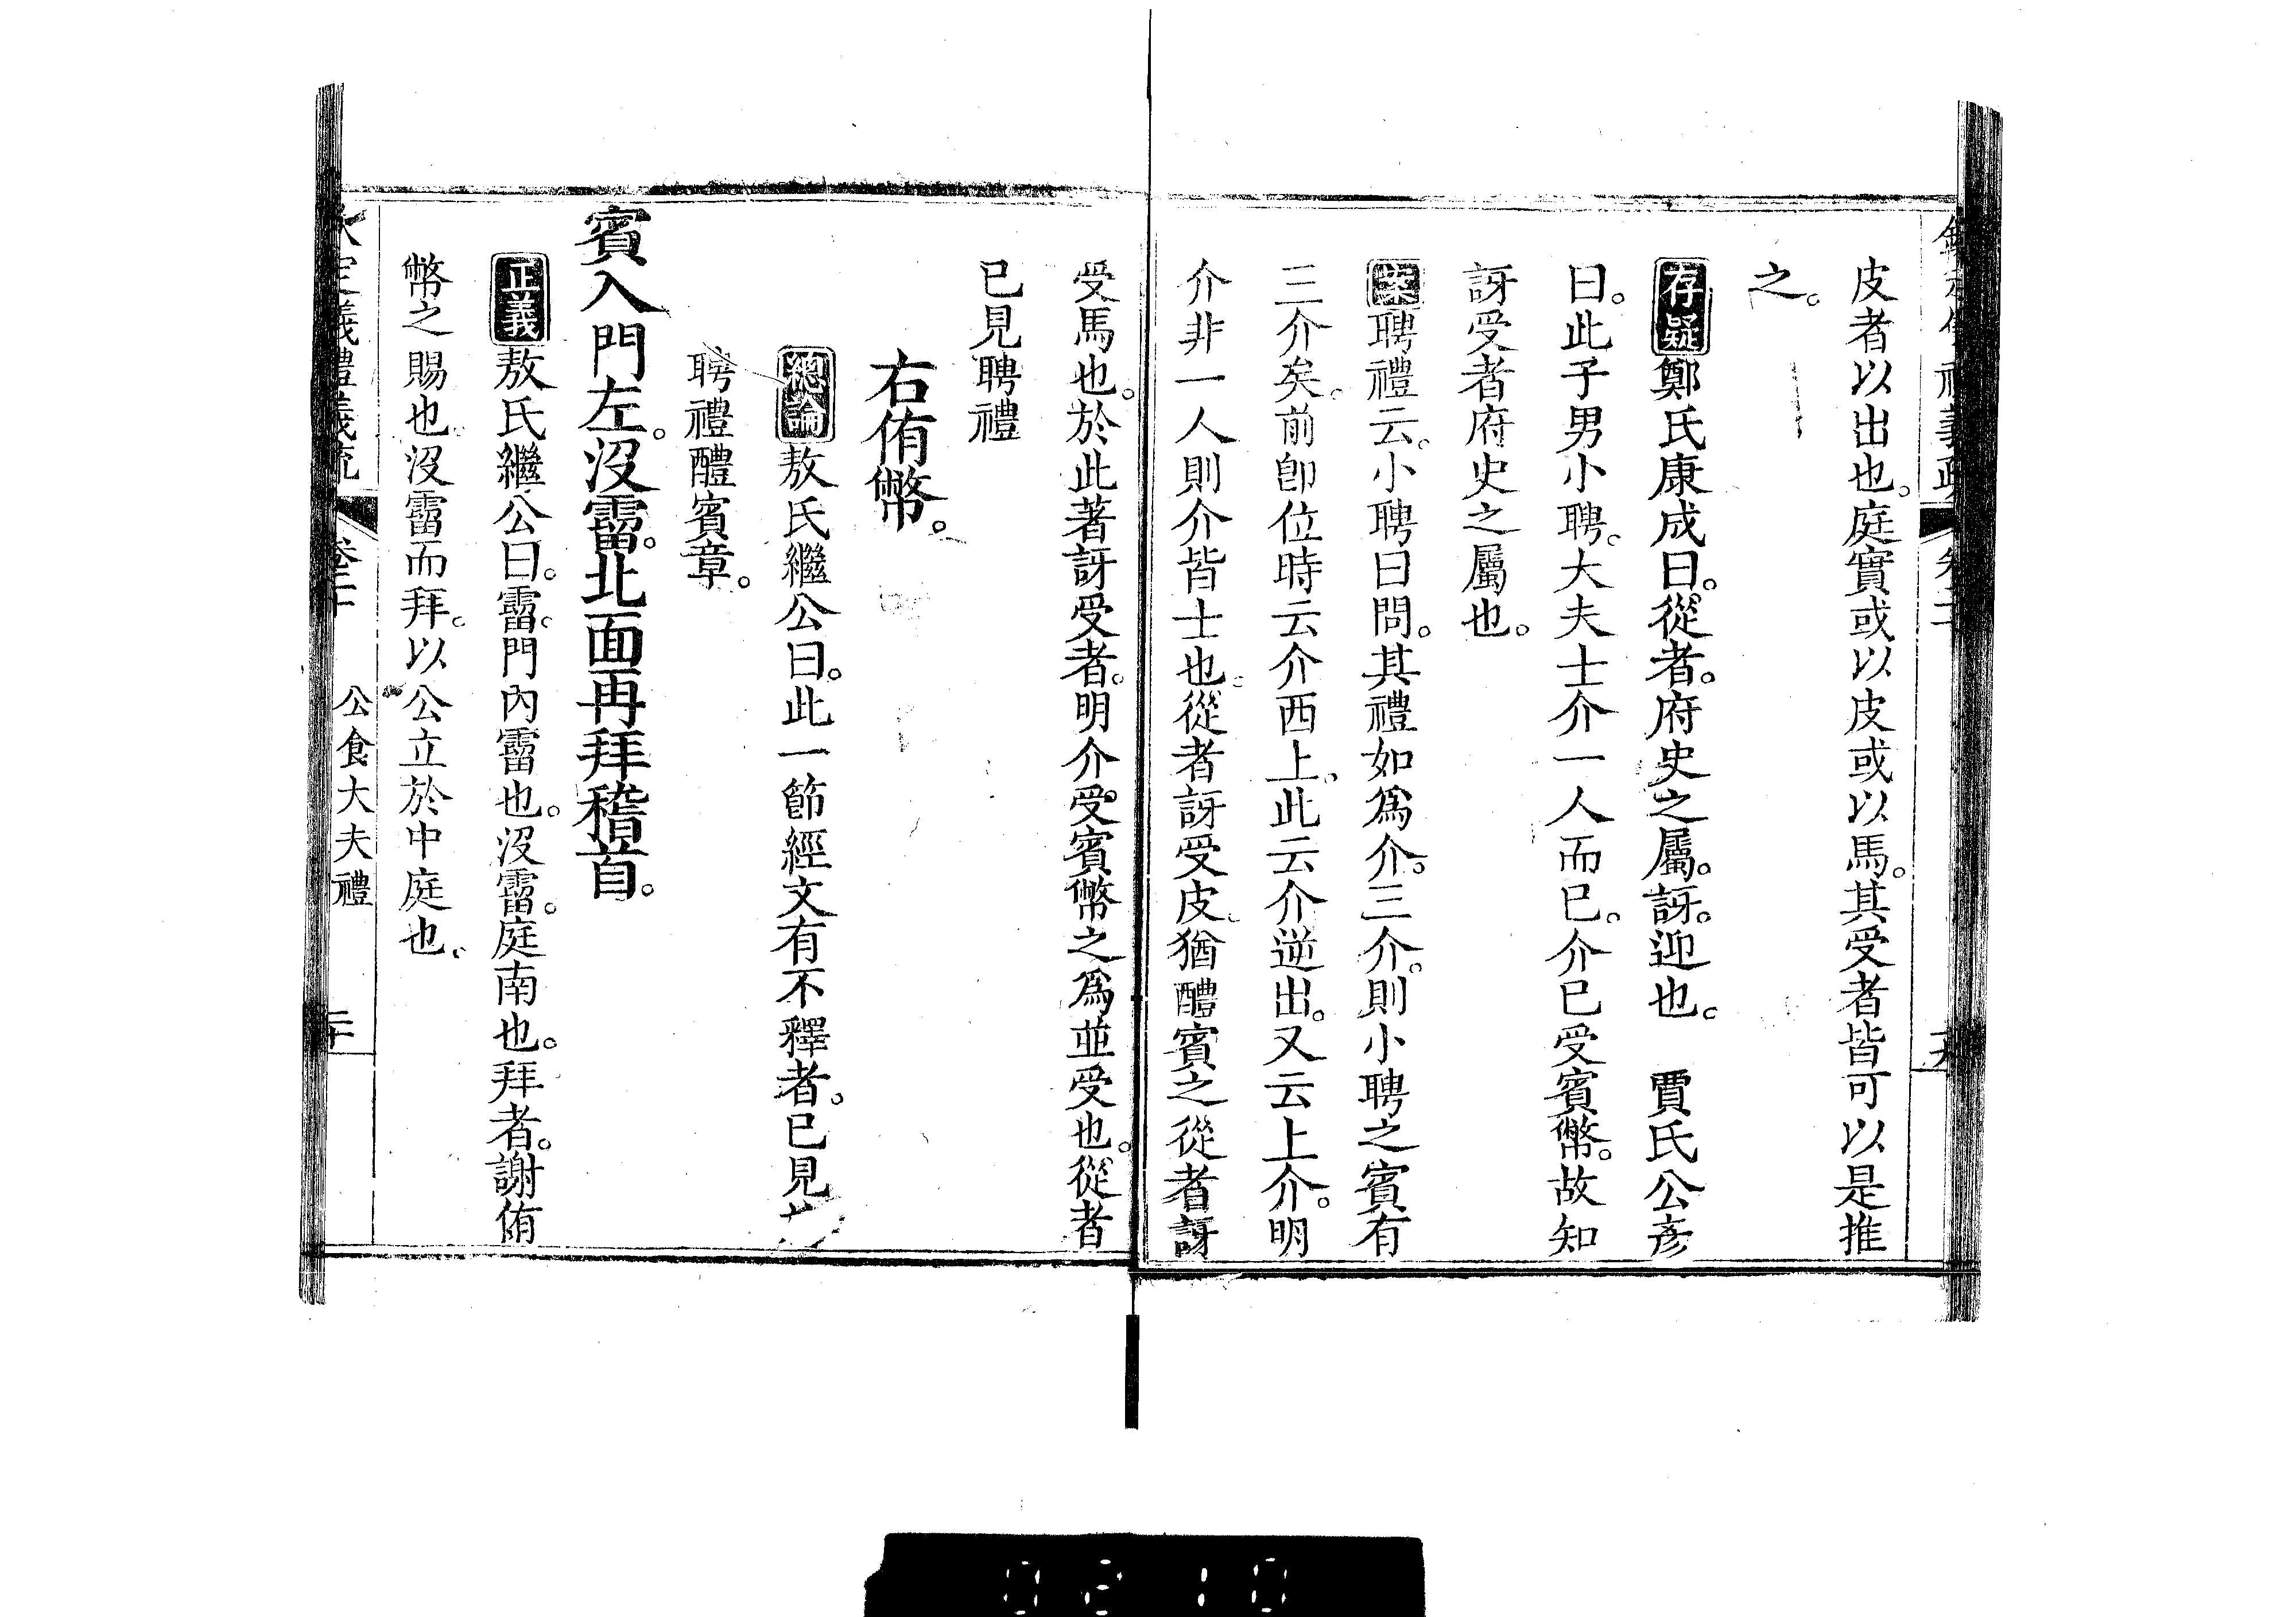 皮者以出也。庭實或以皮或以馬。其受者皆可以是推
之。
存疑鄭氏康成曰。從者。府史之屬。訝。迎也。　賈氏公彥
曰。此子男小聘。大夫士介一人而已。介已受賓幣。故知
訝受者府史之屬也。
案聘禮云。小聘曰問。其禮如爲介。三介。則小聘之賓有
三介矣。前卽位時云介西上。此云介逆出。又云上介。明
介非一人則介皆士也。從者訝受皮。猶醴賓之從者訝
受馬也。於此著訝受者。明介受賓幣之爲並受也。從者
已見聘禮
右侑幣。
總論敖氏繼公曰。此一節經文有不釋者。已見
聘禮醴賓章。
賓入門左。沒霤。北面再拜稽首。
正義敖氏繼公曰。霤。門內霤也。沒霤。庭南也。拜者。謝侑
幣之賜也。沒霤而拜。以公立於中庭也。
公食大夫禮
二十
0210